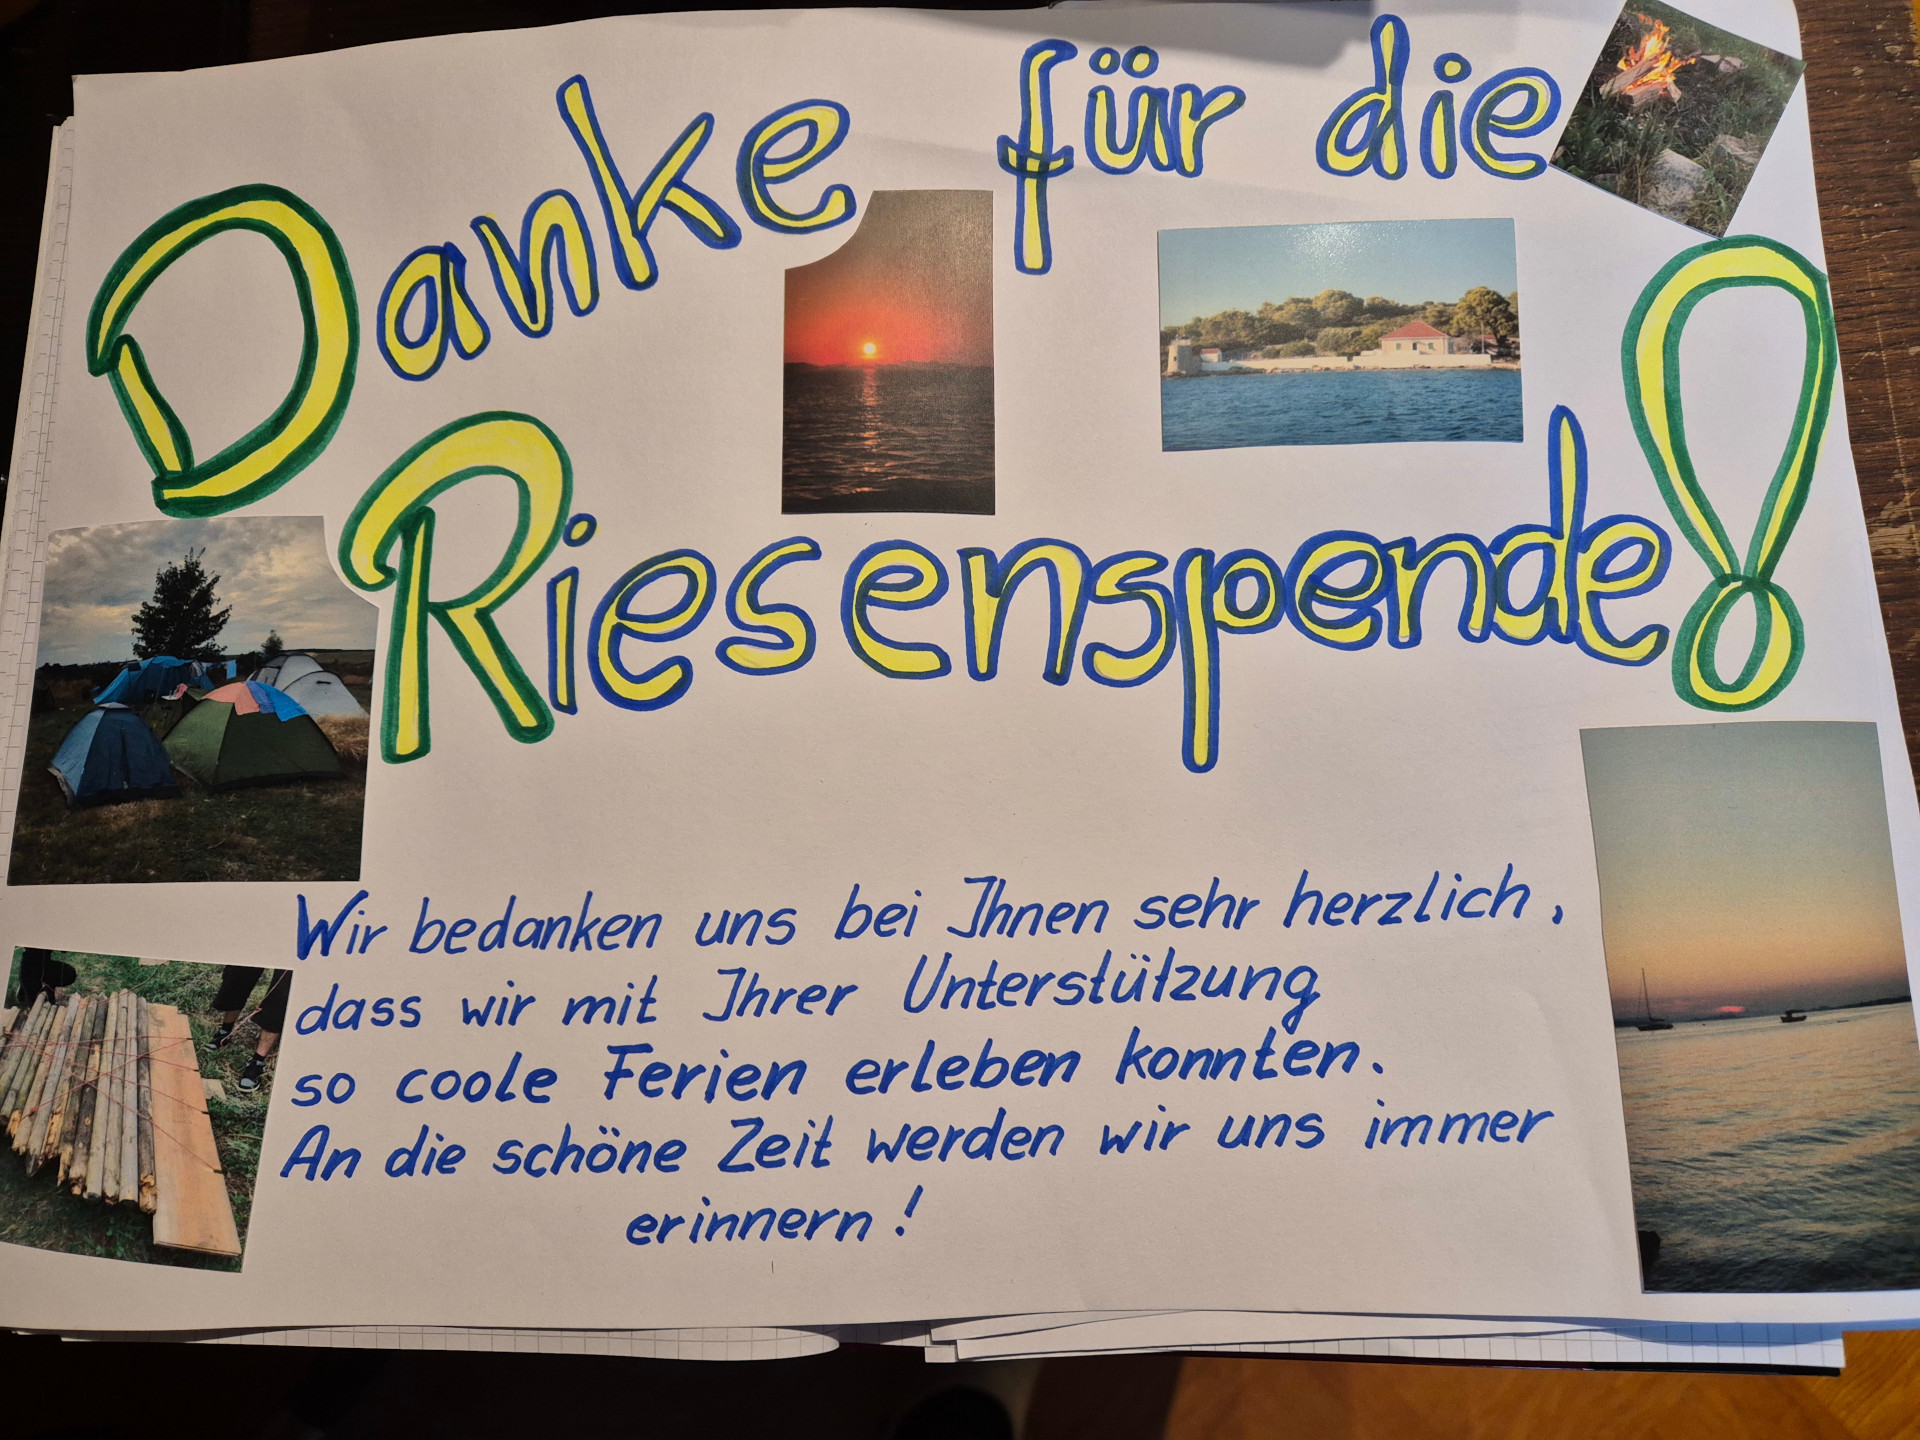 Danke für die
Riesenspende!
Wir bedanken uns bei Ihnen sehr herzlich,
dass wir mit Ihrer Unterstützung
so coole Ferien erleben konnten.
An die schöne Zeit werden wir uns immer
erinnern!